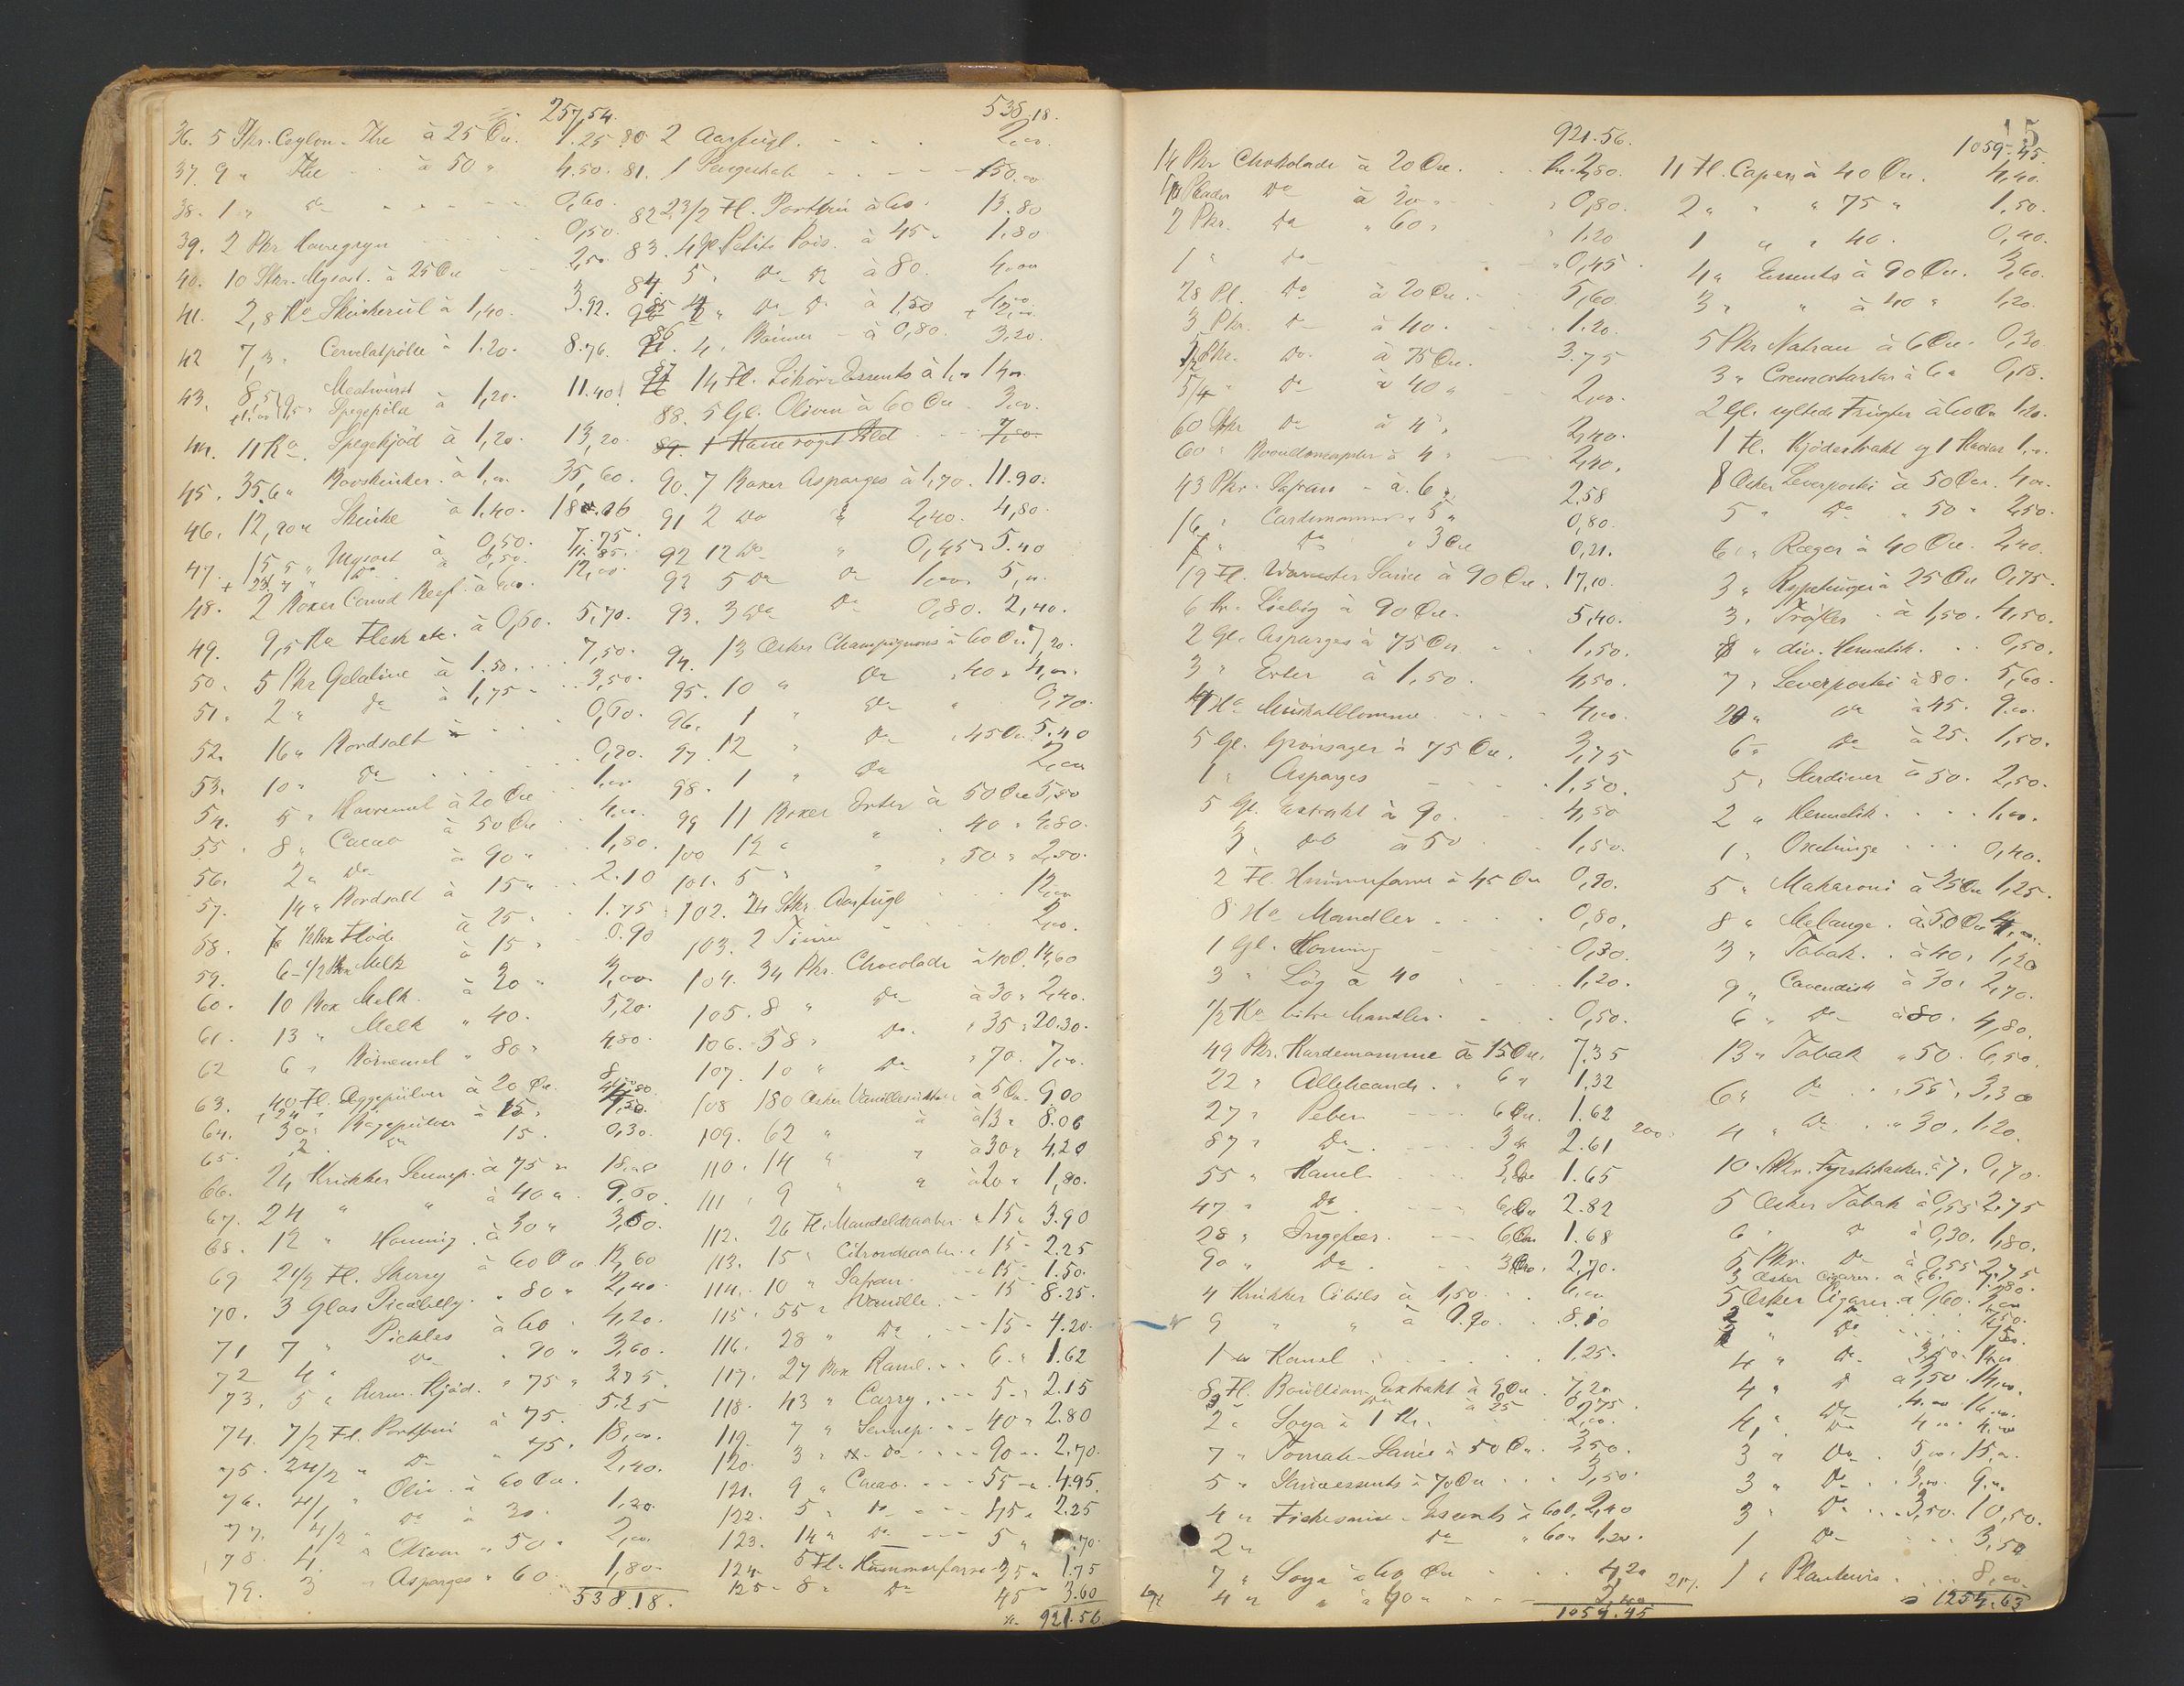 257,54.
36. 5 Pkr. Ceylon-The à 25 Øre. 1.25
37. 9 " The à 50 " 4.50.
38. 1 " Do 0,60.
39. 2 Pkr. Havregryn 0,50.
40. 10 Stkr. Mysost. à 25 Øre 2,50
41. 2,8 Ko Skinkerul à 1,40. 3.92.
42 7,3 " Cervelatpølse à 1.20. 8.76.
43. 8,5 Meatwurst
9,5 " Spegepølse à 1,20. 11.40
44. 11 Ko. Spegekjød à 1,20. 13,20.
45. 35,6 " Raaskinker. à 1,00. 35,60.
46. 12,90 " Skinke à 1.40. 18.06
47. 15,5 " Mysost à 0,50. 7.75.
+ 23,7 " Do à 0,50. 11.85.
48. 2 Boxer Corned Beef. à 6,00. 12,00.
49. 9,5 Ko Flesk etc. à 0,60. 5,70.
50. 5 Pkr Gelatine à 1.50. 7,50.
51. 2 " Do à 1,75 3,50.
52. 16 " Bordsalt 0,60.
53. 10 " Do 0,20.
54. 5 " Havremel à 20 Øre 1,00
55. 8 " Cacao à 50 Øre 4,00.
56. 2 " Do à 90 " 1,80.
57. 14 " Bordsalt à 15 " 2.10
58. 7 1/2 Box Fløde à 25 " 1.75
59. 6 1/2 Box Melk à 15 " 0.90
60. 10 Box Melk à 30 " 3,00
61. 13 " Melk " 40. 5,20.
62 6 " Børnemel " 80 " 4,80.
63. 40 Fl. Æggepulver à 20 Øre. 8,00
64. 30 " Bagepulver à 15 " 4,50.
65. 2 " Do 15. 0,30.
66. 24 Krukker Sennep. à 75 " 18,00
67. 24 " " à 40 " 9,60.
68. 12 " Honning. à 30 " 3,60.
69 21/2 Fl. Sherry à 60 Øre 12,60
70. 3 Glas Picalilly. " 80 " 2,40.
71 7 " Pickles à 60. 4,20.
72 4 " Do " 90 " 3,60.
73. 5 " Herm. Kjød. " 75 " 3.75.
74. 7/2 Fl. Portvin à 75. 5.25
75. 24/2 " Do " 75. 18,00.
76. 4/1 " Olie. à 60 Øre. 2,40.
77. 4/2 " Do à 30. 1,20.
78. 4 " Oliven " 50 " 2,00.
79. 3 " Asparges " 60 1,80.
538.18.
538.18.
80 2 Aarfugl. 2,00.
81. 1 Pengeskab 150.00
82 23/2 Fl. Portvin à 60. 13.80
83. 4 Gl. Petits Pois. à 45 " 1.80.
84. 5 " Do Do à 80. 4.00
85 4 " Do Do à 1,50
86 4 " Bønner à 0,80. 3.20.
87 14 Fl. Likør-Essents à 1,00 14,00.
88. 5 Gl. Oliven à 60 Øre 3,00.
89. 1 Kasse røget Sild 7,50.
90. 7 Boxer Asparges à 1,70. 11.90.
91 2 Do " 2,40. 4,80.
92 12 Do " 0,45 " 5.40
92 5 Do Do 1,00 " 5,00.
93. 3 Do Do 0,80. 2,40.
94. 13 Æsker Champignons à 60 Øre 7,20.
95. 10 " Do " 40 " 4,00.
96. 1 " Do " 0,70.
97. 12 " Do " 45 Øre 5.40
98. 1 " Do 2,00
99 11 Boxer Erter à 50 Øre 5,50
100 12 " " 40 " 4,80.
101. 5 " " " 50 " 2,50.
102. 24 Stkr. Aarfugl 12,00
103. 2 Tiurer 2,00.
104. 34 Pkr. Chocolade à 40 Ø. 13,60
105. 8 " Do à 30 " 2,40.
106. 58 " Do. " 35 " 20.30.
107. 10 " Do " 70. 7,00.
108 180 Æsker Vanillesukker à 5 Øre. 9.00
109. 62 " à à 13 " 8.06
110. 14 " " à 30 " 4,20
111. 9 " " à 20 " 1,80.
112. 26 Fl. Mandeldraaber " 15 " 3.90
113. 15 " Citrondraaber " 15 - 2.25
114. 10 " Safran. 15 - 1.50.
115. 55 " Vanille. 15 - 8.25.
116. 28 " Do 15 - 4.20.
117. 27 Box Kanel. 6. " 1.62
118. 43 " Carry. 5 - " 2.15
119. 7 " Sennep. 40 " 2.80
120. 3 " Do 90 - 2.70.
121. 9 " Cacao. 55 - 4.95.
122. 5 " Do 45 " 2.25
123. 14 " Do 5 " .70.
124. 5 Fl. Hummerfarve 35 " 1.75
125 - 8 " Do 45 - 3.60
Kr. 921.56
15
921.56.
14 Pkr Chokolade à 20 Øre. Kr. 2,80.
Plader Do à 20 " " 0,80.
2 Pkr. Do " 60 " " 1.20
1 " Do " 0,45.
28 Pl. Do à 20 Øre. 5,60.
3 Pkr. Do à 40. 1.20.
5/2 Pkr. Do. à 75 Øre. 3.75
5/4 " Do à 40 " 2,00.
60 Pkr Do à 4 " 2,40.
60 " Bouillonscapsler à 4 " 2,40.
43 Pkr. Safran à 6 " 2.58
16 " Cardemomme " 5 " 0,80.
7 " Do " 3 Øre 0,21.
19 Fl. Worcester Sauce à 90 Øre. 17,10.
6 Kr. Liebig à 90 Øre. 5,40.
2 Gl. Asparges à 75 Øre 1,50.
3 " Erter à 1,50. 4,50.
4 Hg Muskatblomme 4,00.
5 Gl. Grønsager à 75 Øre. 3,75
1 " Asparges 1,50.
5 Gl. Extrakt à 90 4,50
3 " Do à 50 1,50.
2 Fl. Hummerfarve à 45 Øre 0,90.
8 Hg Mandler 0,80.
1 Gl. Honning 0,30.
3 " Løg à 40 1,20.
1/2 Ko bitre Mandler. 0,50.
49 Pkr. Kardemomme à 15 Øre. 7.35
22 " Allehaande. " 6 " 1.32
27 " Peber 6 Øre. 1.62
87 " Do. 3 " 2.61
55 " Kanel 3 Øre 1.65
47 " Do. 6 Øre 2.82
28 " Ingefær. 6 Øre 1.68
90 " Do. 3 Øre. 2,70.
4 Krukker Cibils à 1,50. 6,00
9 " " à 0.90. 8.10
1 " Kanel 1,25.
8 Fl. Bouillion-Extrakt à 90 Øre. 7,20
3 " Do à 25 0,75
2 " Soya à 1 Kr. 2,00.
7 " Tomat-Sauce à 50 Øre. 3,50.
5 " Sauceessents à 70 Øre 3,50.
4 " Fiskesauce-Essents à 60 Ø. 2,40
2 " Do " 60 " 1,20.
7 " Soya à 60 Øre 4,20
4 " " à 60 " 2,40
1059.45
1059.45.
11 Fl. Capers à 40 Øre. 4,40.
2 " " " 75 " 1,50.
1 " " " 40. 0,40.
4 " Essents à 90 Øre. 3,60.
3 " " à 40 " 1,20.
5 Pkr Natron à 6 Øre. 0,30
3 " Cremortartar à 6 " 0,18.
2 Gl. syltede Frugter à 60 Øre 1.20.
1 Fl. Kjødextrakt og 1 Kaviar 1,00.
8 Æsker Leverpostei à 50 Øre. 4,00.
5 " Do " 50 " 2,50.
6 " Ræger à 40 Øre. 2,40.
3 " Rypetunger à 25 Øre 0,75.
3 " Trøfler à 1,50. 4,50.
" div. Hermetik. 0,50.
7 " Leverpostei à 80. 5,60.
20 " Do à 45. 9.00.
6 " Do à 25. 1,50.
5 " Sardiner à 50. 2,50.
2 " Hermetik. 1,00.
1 " Oxetunge 0,40.
5 " Makaroni à 25 Øre 1,25.
8 " Melange. à 50 Øre 4,00.
3 " Tabak. à 40 " 1,20
9 " Cavendish à 30 " 2,70.
6 " Do à 80. 4,80.
13 " Tabak " 50. 6,50
6 " Do " 55 " 3,30
200. 4 " Do " 30. 1.20.
10 Pkr. Fyrstikæsker. à 7. 0,70.
5 Æsker Tabak à 0,55 2,75
6 " Do à 0,30. 1,80.
5 Pkr. Do à 0,55 2,75
3 Æsker Cigarer.
5 Æsker Cigarer. à 0,60. 3,00
4 " Do 3,50. 14,00
4 " Do à 3,50. 14,00.
4 " Do 4.00 16.00.
3 " Do 5,00. 15,00.
3 " Do 3,00. 9,00.
3 " Do 3,50. 10,50.
1 Do 3,50
217. 1 " Planteuris 8,00.
1254.63